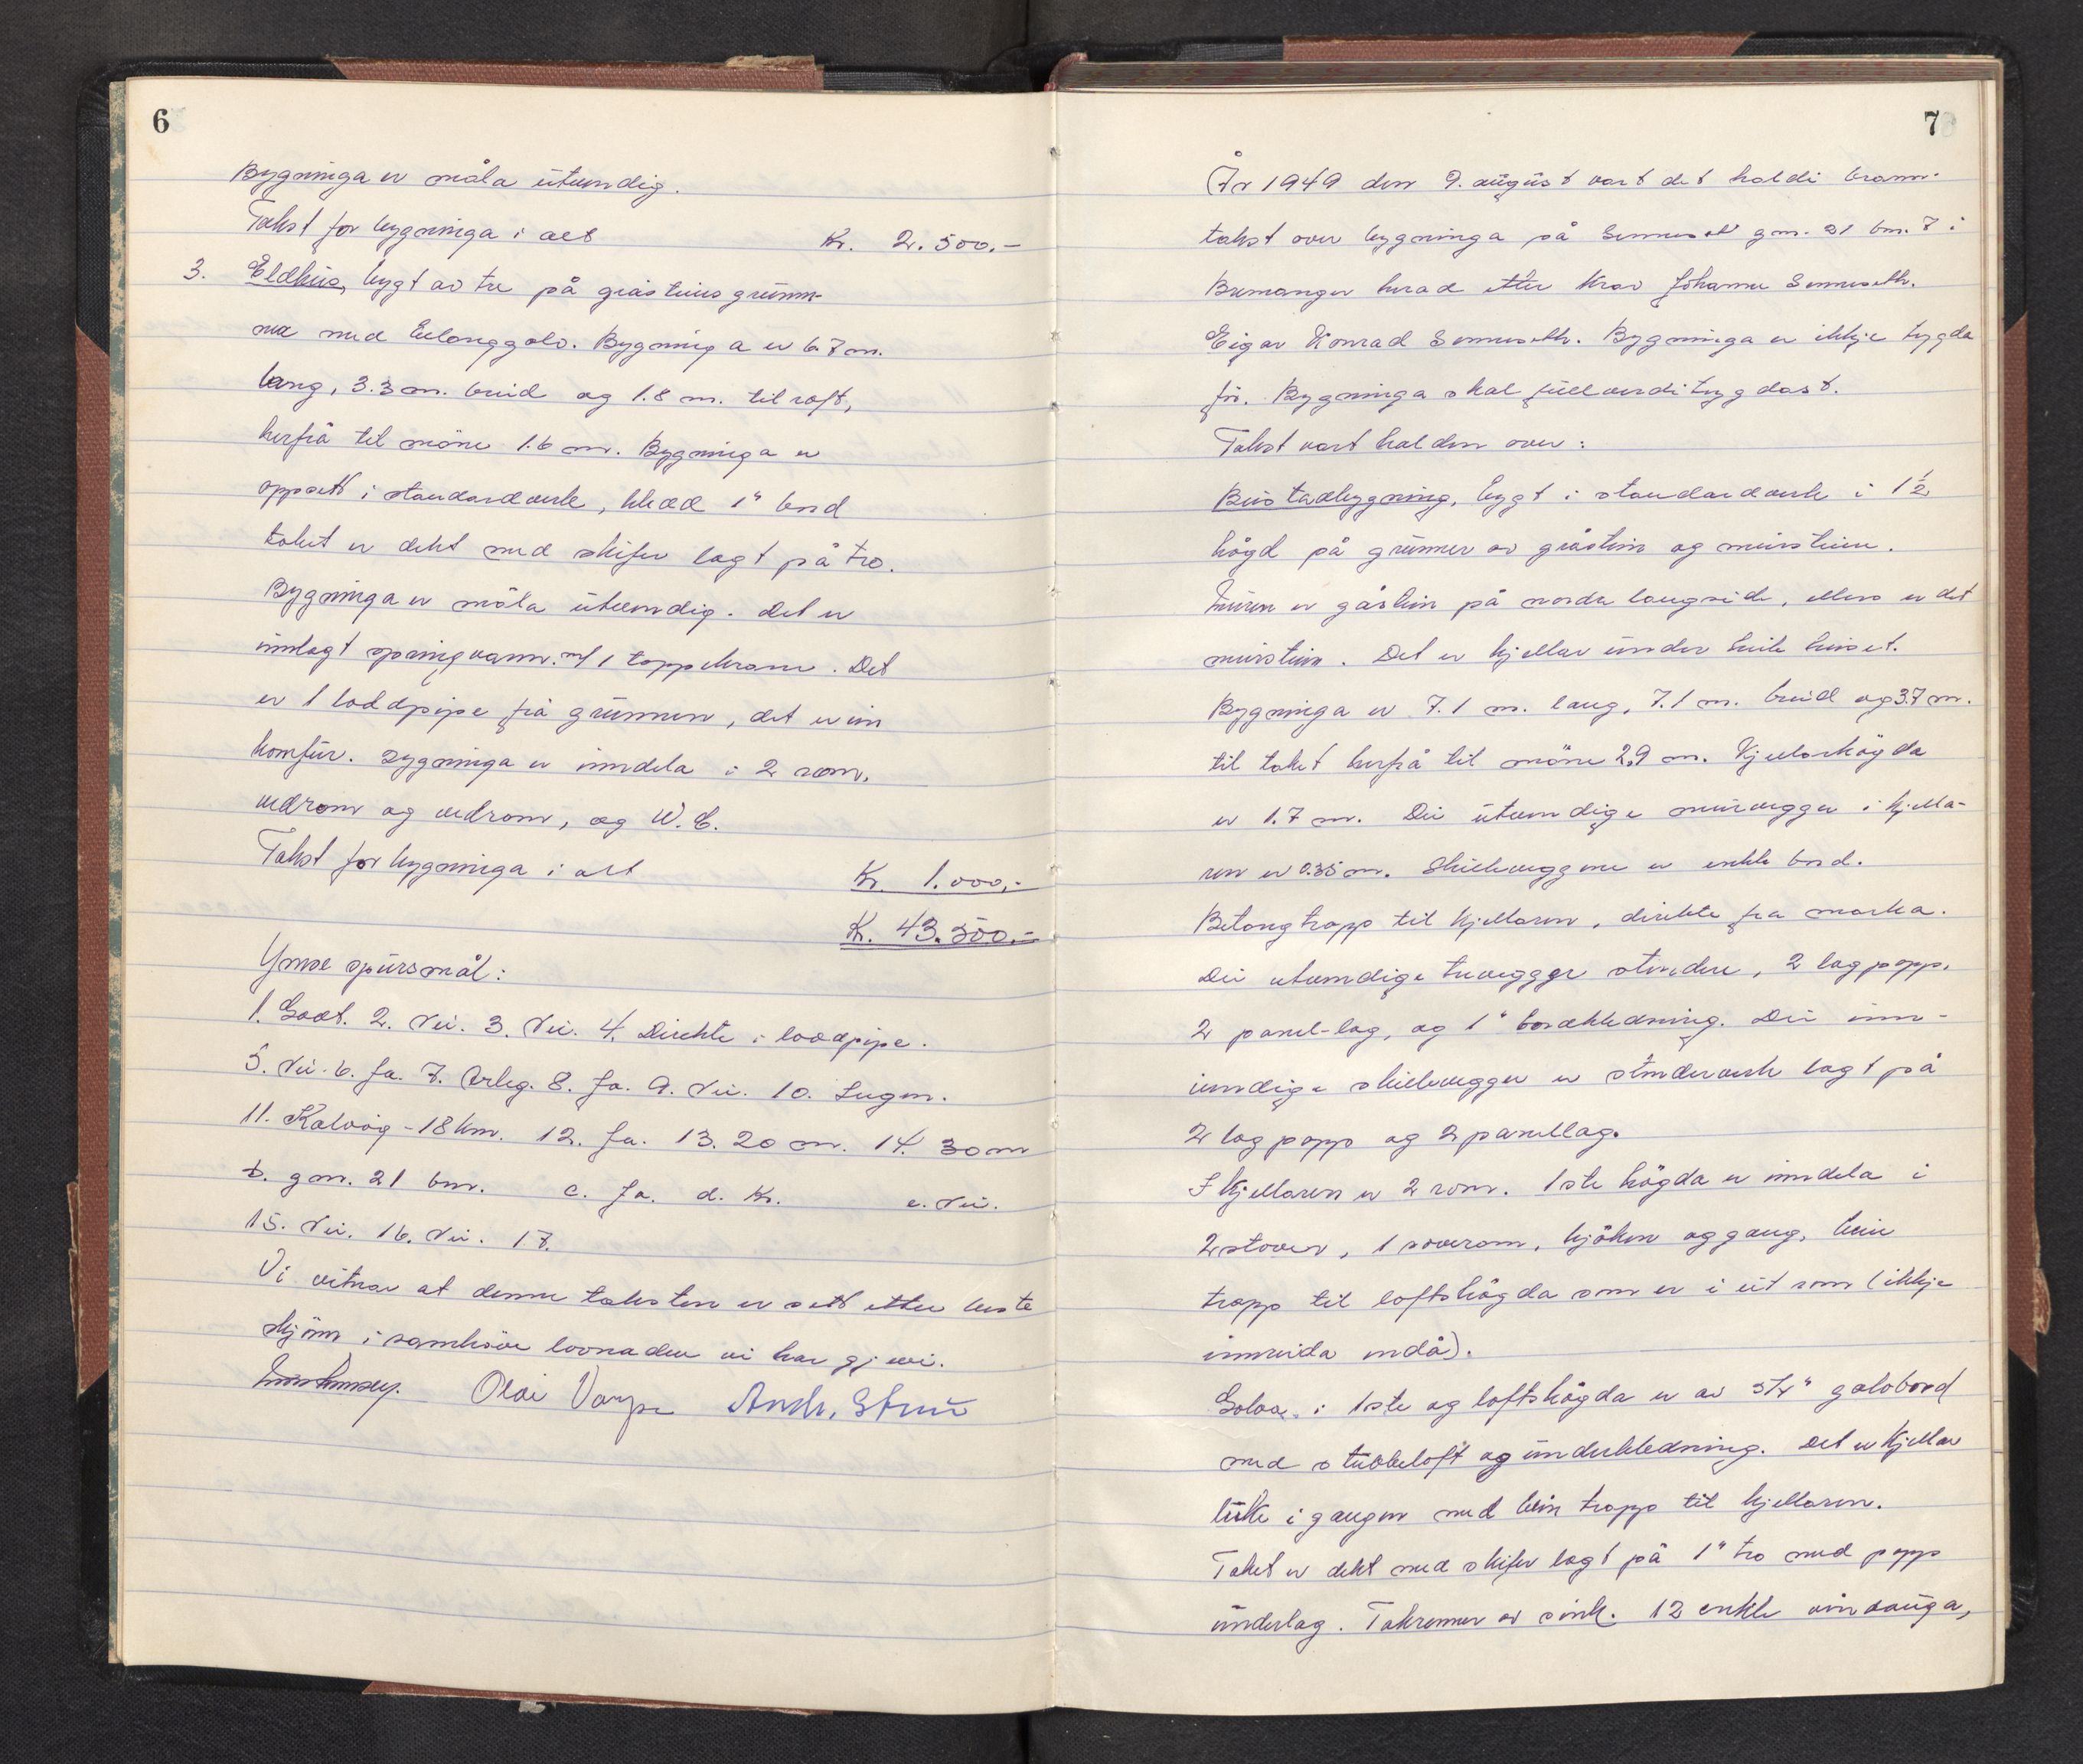 6
Bygninga er måla utvendig.
Takst for bygninga i alt Kr. 2.500.-
3. Eldhus, bygt av tre på gråsteins grunn-
mur med betonggolv. Bygninga er 6.7 m.
lang, 3.3 m. breid og 1.8 m. til raft,
herfrå til möne 1.6 m. Bygninga er
oppsett i standardverk, kledd 1" bord
taket er dekt med skifer lagt på tro.
Bygninga er måla utvendig. Det er
innlagt springvann. m/ 1 tappekrane. Det
er 1 loddpipe frå grunnen, det er ein
komfur. Bygninga er inndela i 2 rom,
vedrom og vedrom, og W.C.
Takst for bygninga i alt Kr. 1.000,-
Kr. 43.500.-
Ymse spursmål:
1. Godt. 2. Nei. 3. Nei. 4. Direkte i loddpipe.
5. Nei. 6. Ja. 7. Årleg. 8. Ja. 9. Nei. 10. Ingen.
11. Kalvåg - 18 km. 12. Ja. 13. 20 m. 14. 30 m
b. gnr. 21 bnr. c. Ja. d. Kr. e. Nei.
15. Nei. 16. Nei. 17.
Vi vitnar at denne taksten er sett etter beste
skjön i samhöve lovnaden vi har gjevi.
Olai Varpe Andr. Strøm
7
År 1949 den 9. august vart det haldi brann-
takst over bygninga på Senneset gnr. 21 bnr. 7 i
Bremanger herad etter krav Johanne Senneseth.
Eigar Konrad Senneseth. Bygninga er ikkje trygda
för. Bygninga skal fullverditrygdast.
Takst vart halden over:
Bustadbygning, bygt i standardverk i 1 1/2
högd på grunnur av gråstein og murstein.
Muren er gåstein på nordre langside, ellers er det
murstein. Det er kjellar under heile huset.
Bygninga er 7.1 m. lang, 7.1 m. breid og 3.7 m.
til taket herfrå til möne 2,9 m. Kjellarhögda
er 1.7 m. Dei utvendige murvegger i kjella-
ren er 0.35 m. Skilleveggene er enkle bord.
Betongtrapp til kjellaren, direkte fra marka.
Dei utvendige trevegger stendere, 2 lag papp.
2 panel-lag, og 1" bordkledning. Dei inn-
vendige skillevegger er stenderverk lagt på
2 lag papp og 2 panellag.
I kjellaren er 2 rom. 1ste högda er inndela i
2 stover, 1 soverom, kjöken og gang, bein
trapp til loftshögda som er i eit rom (ikkje
innreida endå).
Golva i 1ste og loftshögda er av 5/4" golvbord
med stubbeloft og underkledning. Det er kjellar
luke i gangen med bein trapp til kjellaren.
Taket er dekt med skifer lagt på 1" tro med papp
underlag. Takrenner av sink. 12 enkle vindauga,